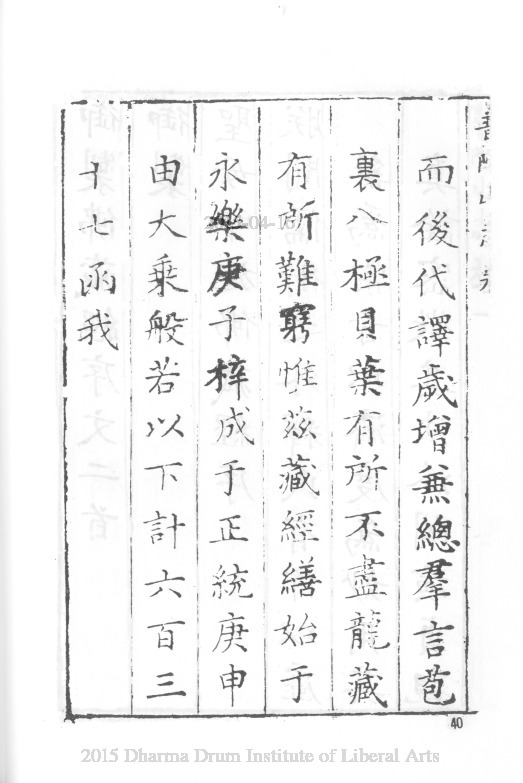 而後代譯歲增兼總羣言苞
裏八極貝葉有所不盡龍藏
有所難窮惟茲藏經繕始于
永樂庚子梓成于正統庚申
由大乗般若以下計六百三
十七函我
40
2015 Dharma Drum Institute of Liberal Arts